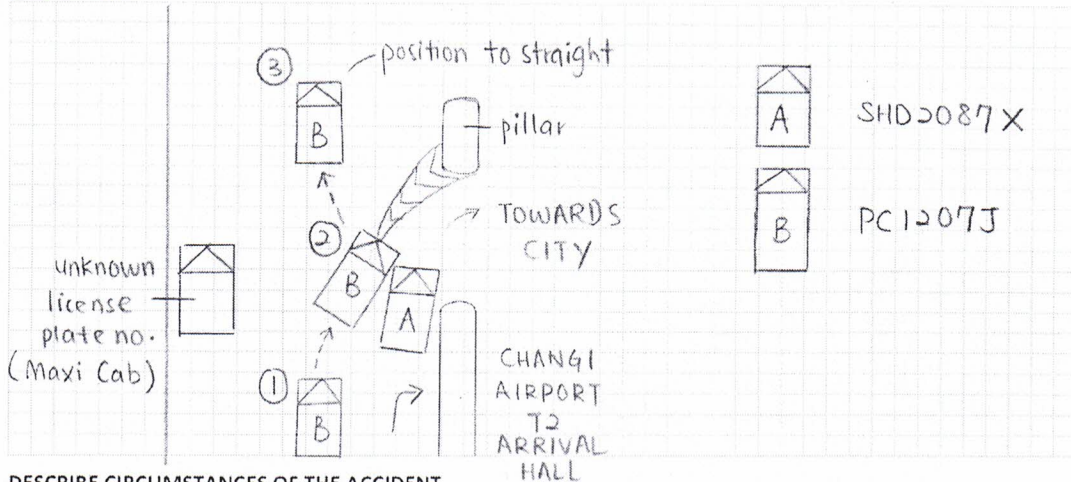 ③
position to straight
B
pillar
A
SHD2087X
B
PC1207J
TOWARDS
CITY
②
B
A
unknown
license
plate no.
(Maxi Cab)
①
B
CHANGI
AIRPORT
T2
ARRIVAL
HALL
DESCRIBE CIRCUMSTANCES OF THE ACCIDENT